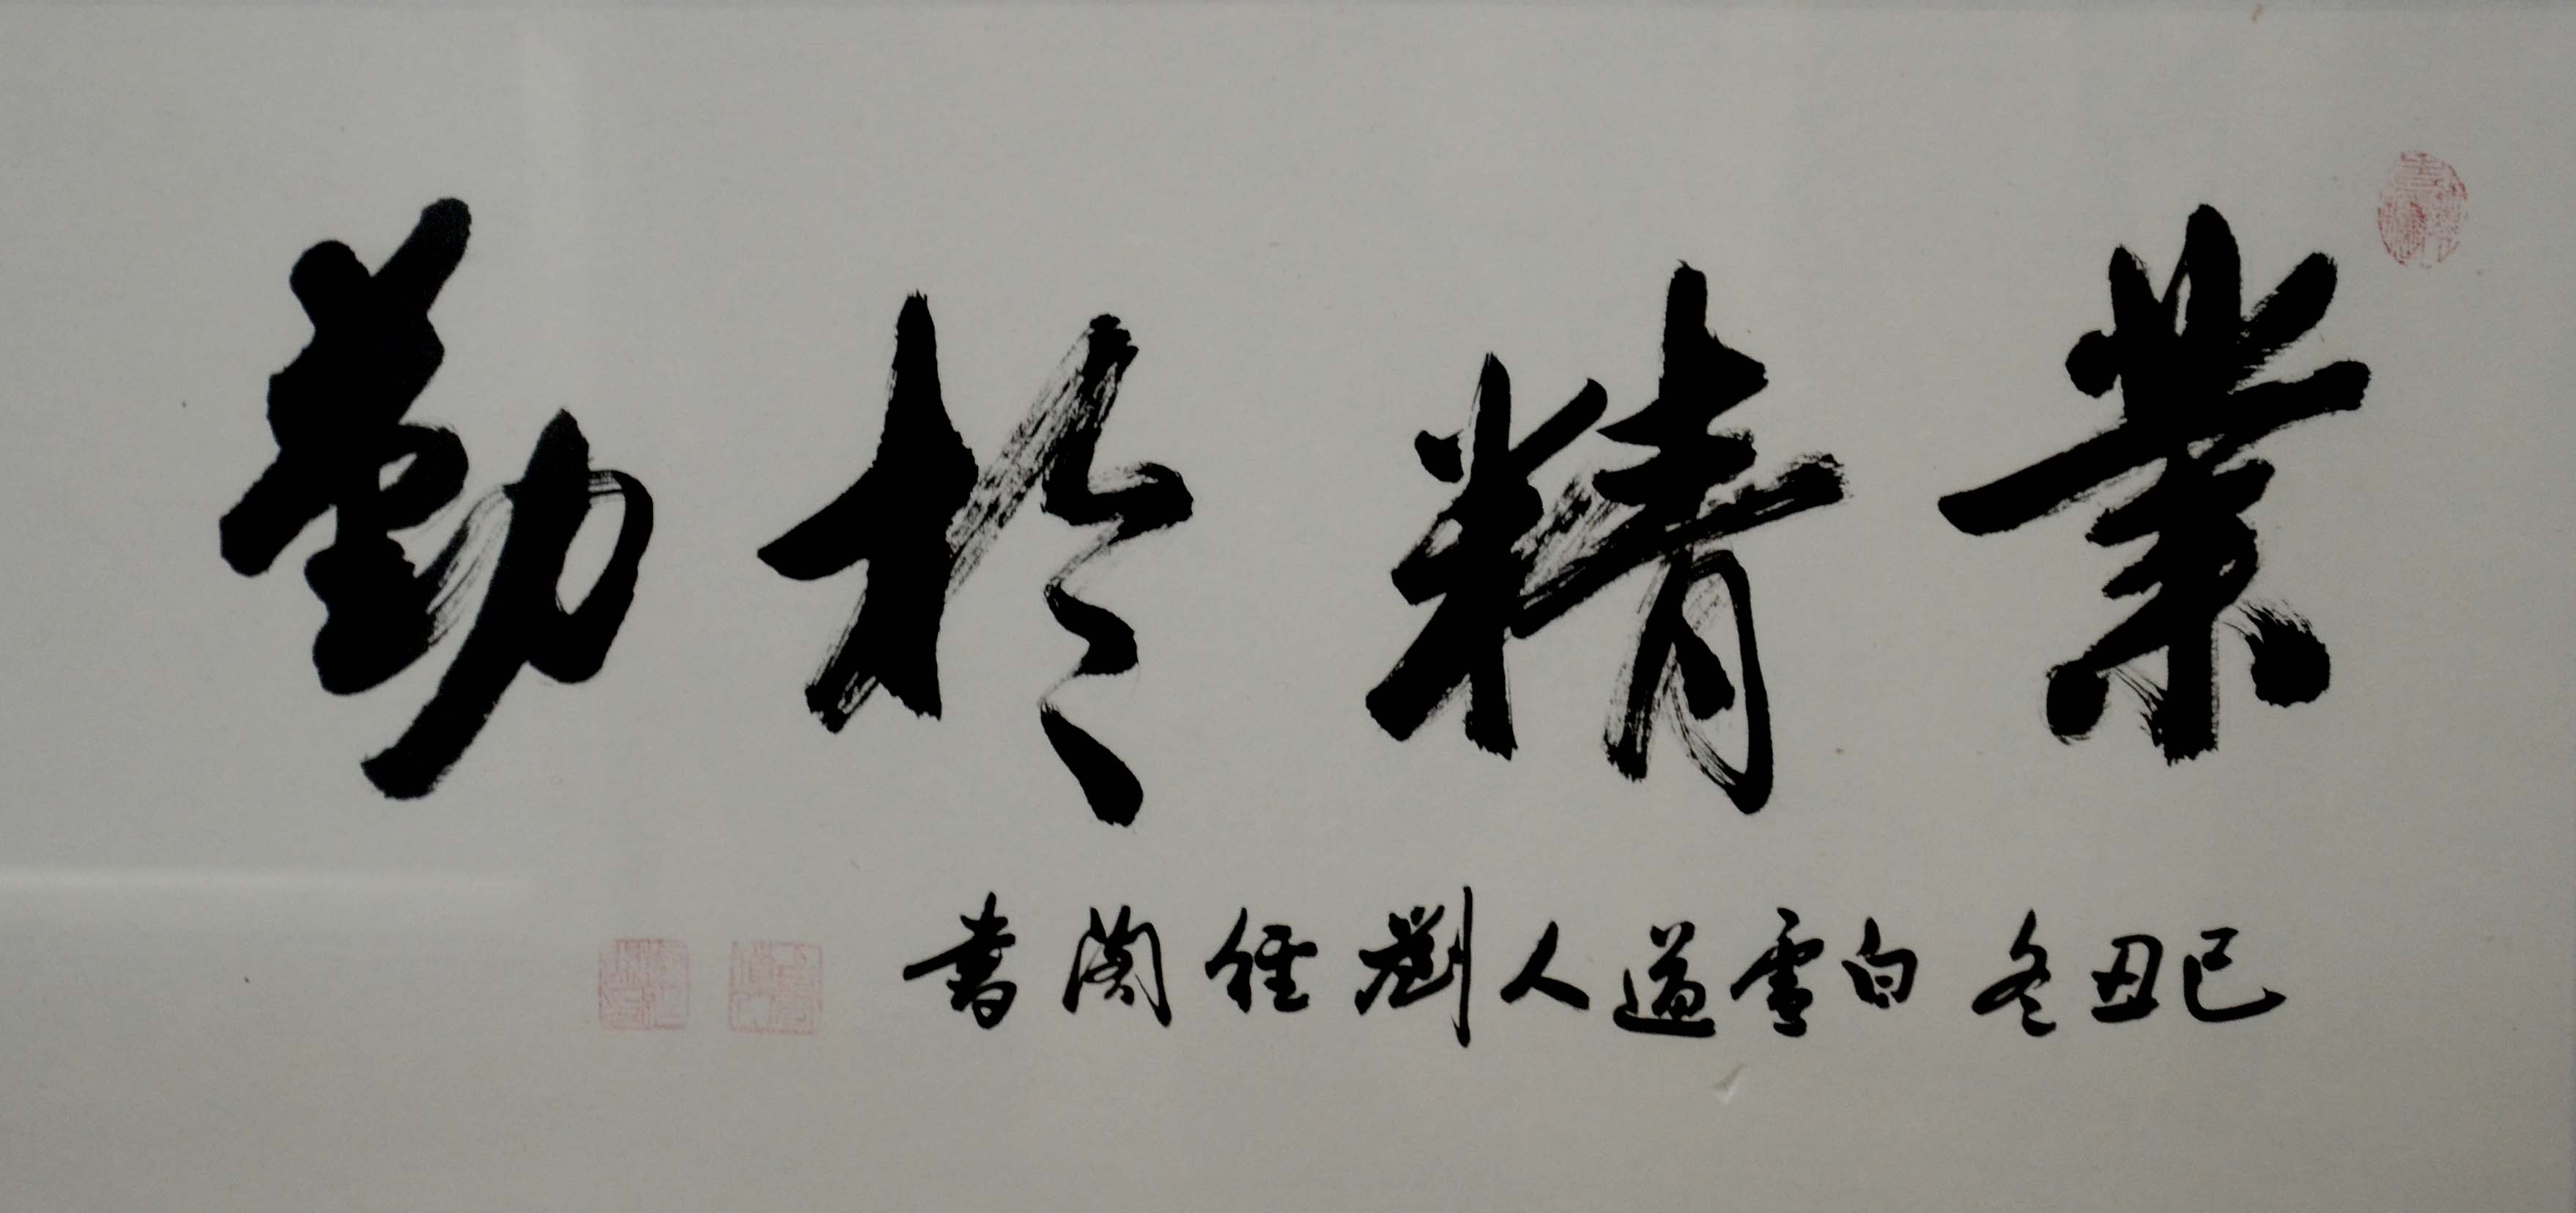 業精於勤
己丑冬白雪道人劉經閣書